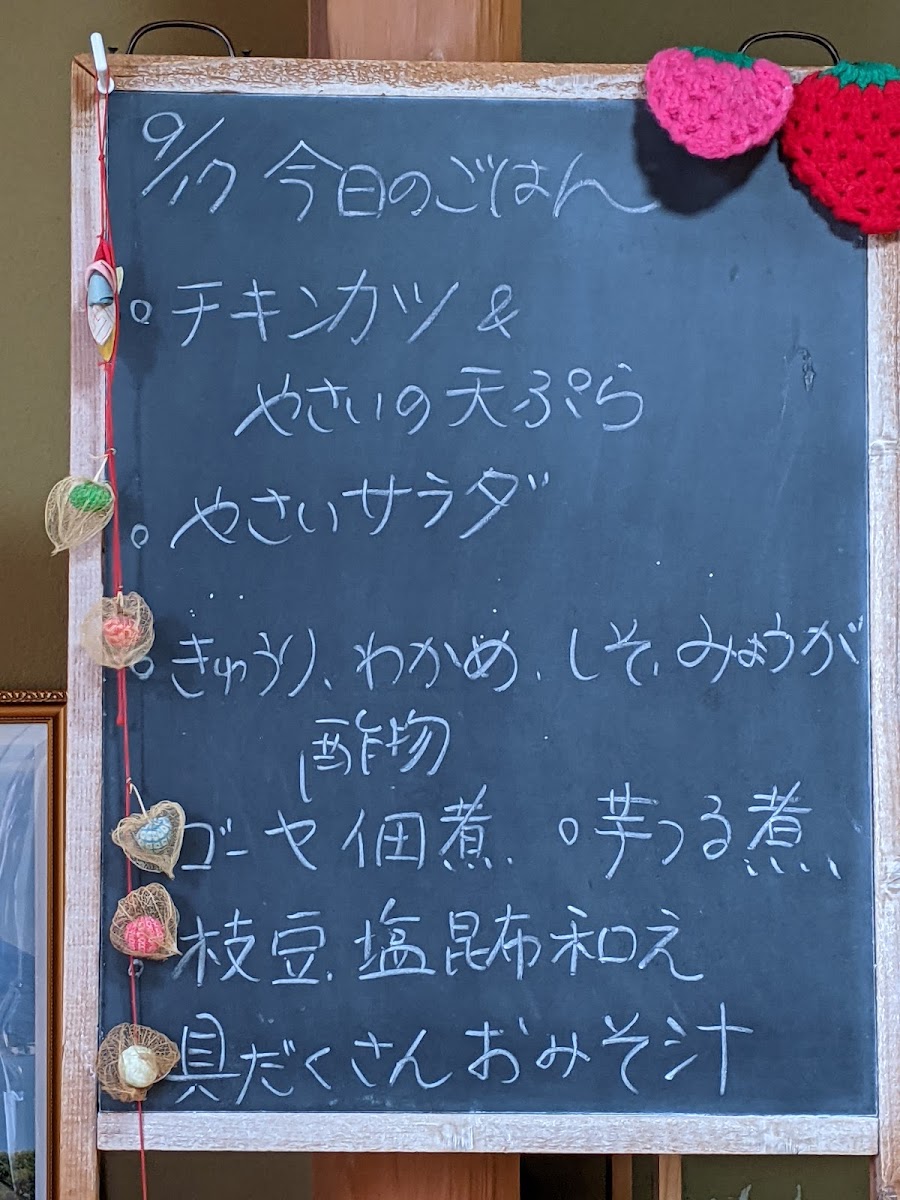 9/17 今日のごはん
。チキンカツ &
やさいの天ぷら
。やさいサラダ
。きゅうり、わかめ、しそ、みょうが
酢物
ゴーヤ佃煮、 。芋つる煮、
。枝豆、塩昆布和え
具だくさんおみそ汁